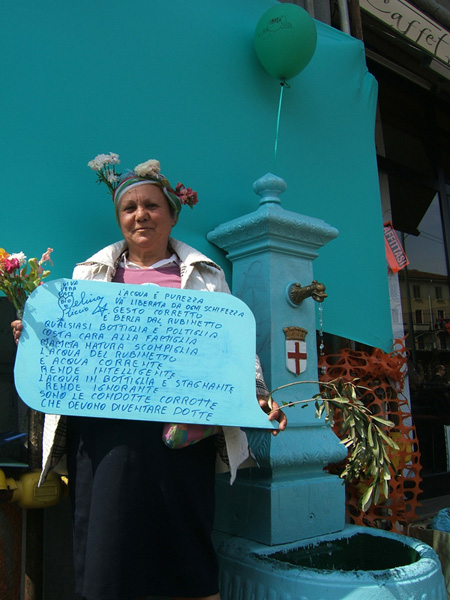 Caffett
AFFITTASI
VIVA
L'ACQUA È PUREZZA
VA LIBERATA DA OGNI SCHIFEZZA
GESTO CORRETTO
È BERLA DAL RUBINETTO
QUALSIASI BOTTIGLIA È POLTIGLIA
COSTA CARA ALLA FAMIGLIA
MAMMA NATURA SCOMPIGLIA
L'ACQUA DEL RUBINETTO
È ACQUA CORRENTE
RENDE INTELLIGENTE
L'ACQUA IN BOTTIGLIA È STAGNANTE
RENDE IGNORANTE
SONO LE CONDOTTE CORROTTE
CHE DEVONO DIVENTARE DOTTE